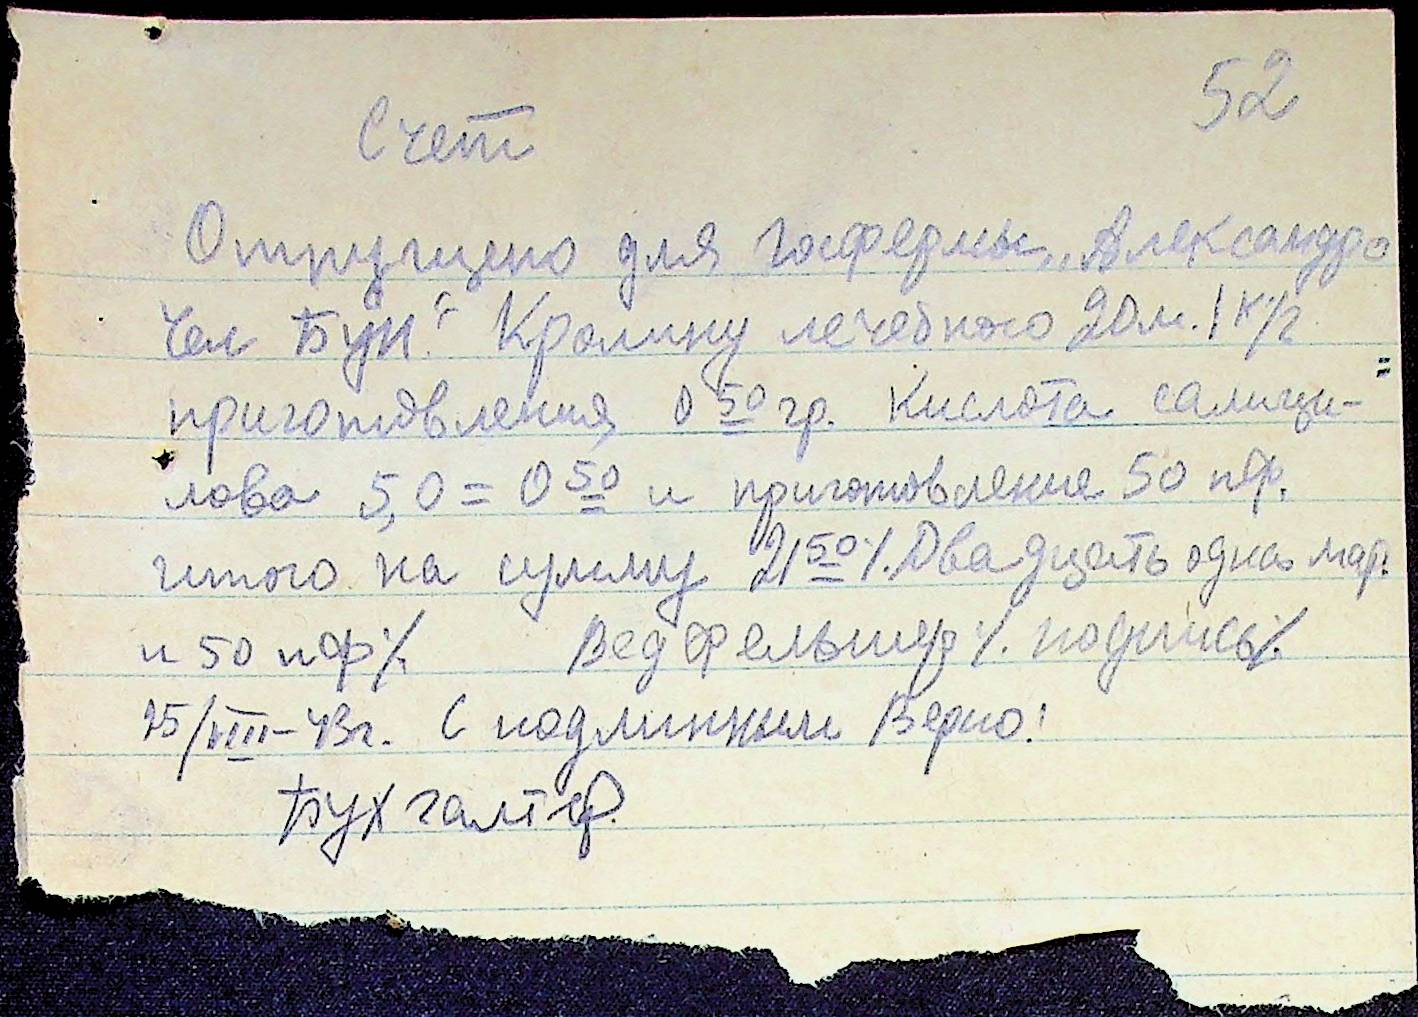 52
Счет
Отпущено для госфермы „Александро
чел Бун." Кролину лечебного 20 м. 1 к/г
приготовления 0 50 гр. Кислота салици-
лова 5,0 = 0 50 и приготовление 50 пф.
итого на сумму 21 50 /. Двадцать одна мар.
и 50 пф /.     Ведфельшер /. подпись /.
25/VIII-43 г. С подлинным Верно!
Бухгалтер